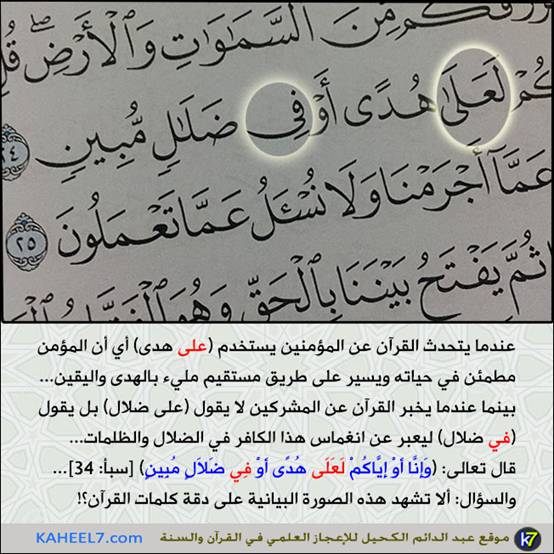 مِّنَ السَّمَاوَاتِ وَالْأَرْضِ ۖ قُلِ
لَعَلَىٰ هُدًى أَوْ فِي ضَلَالٍ مُّبِينٍ
عَمَّا أَجْرَمْنَا وَلَا نُسْـَٔلُ عَمَّا تَعْمَلُونَ ٢٥
ثُمَّ يَفْتَحُ بَيْنَنَا بِالْحَقِّ وَهُوَ
عندما يتحدث القرآن عن المؤمنين يستخدم (على هدى) أي أن المؤمن
مطمئن في حياته ويسير على طريق مستقيم مليء بالهدى واليقين...
بينما عندما يخبر القرآن عن المشركين لا يقول (على ضلال) بل يقول
(في ضلال) ليعبر عن انغماس هذا الكافر في الضلال والظلمات...
قال تعالى: (وَإِنَّا أَوْ إِيَّاكُمْ لَعَلَى هُدًى أَوْ فِي ضَلَالٍ مُبِينٍ) [سبأ: 34]...
والسؤال: ألا تشهد هذه الصورة البيانية على دقة كلمات القرآن؟!
k7 موقع عبد الدائم الكحيل للإعجاز العلمي في القرآن والسنة KAHEEL7.com